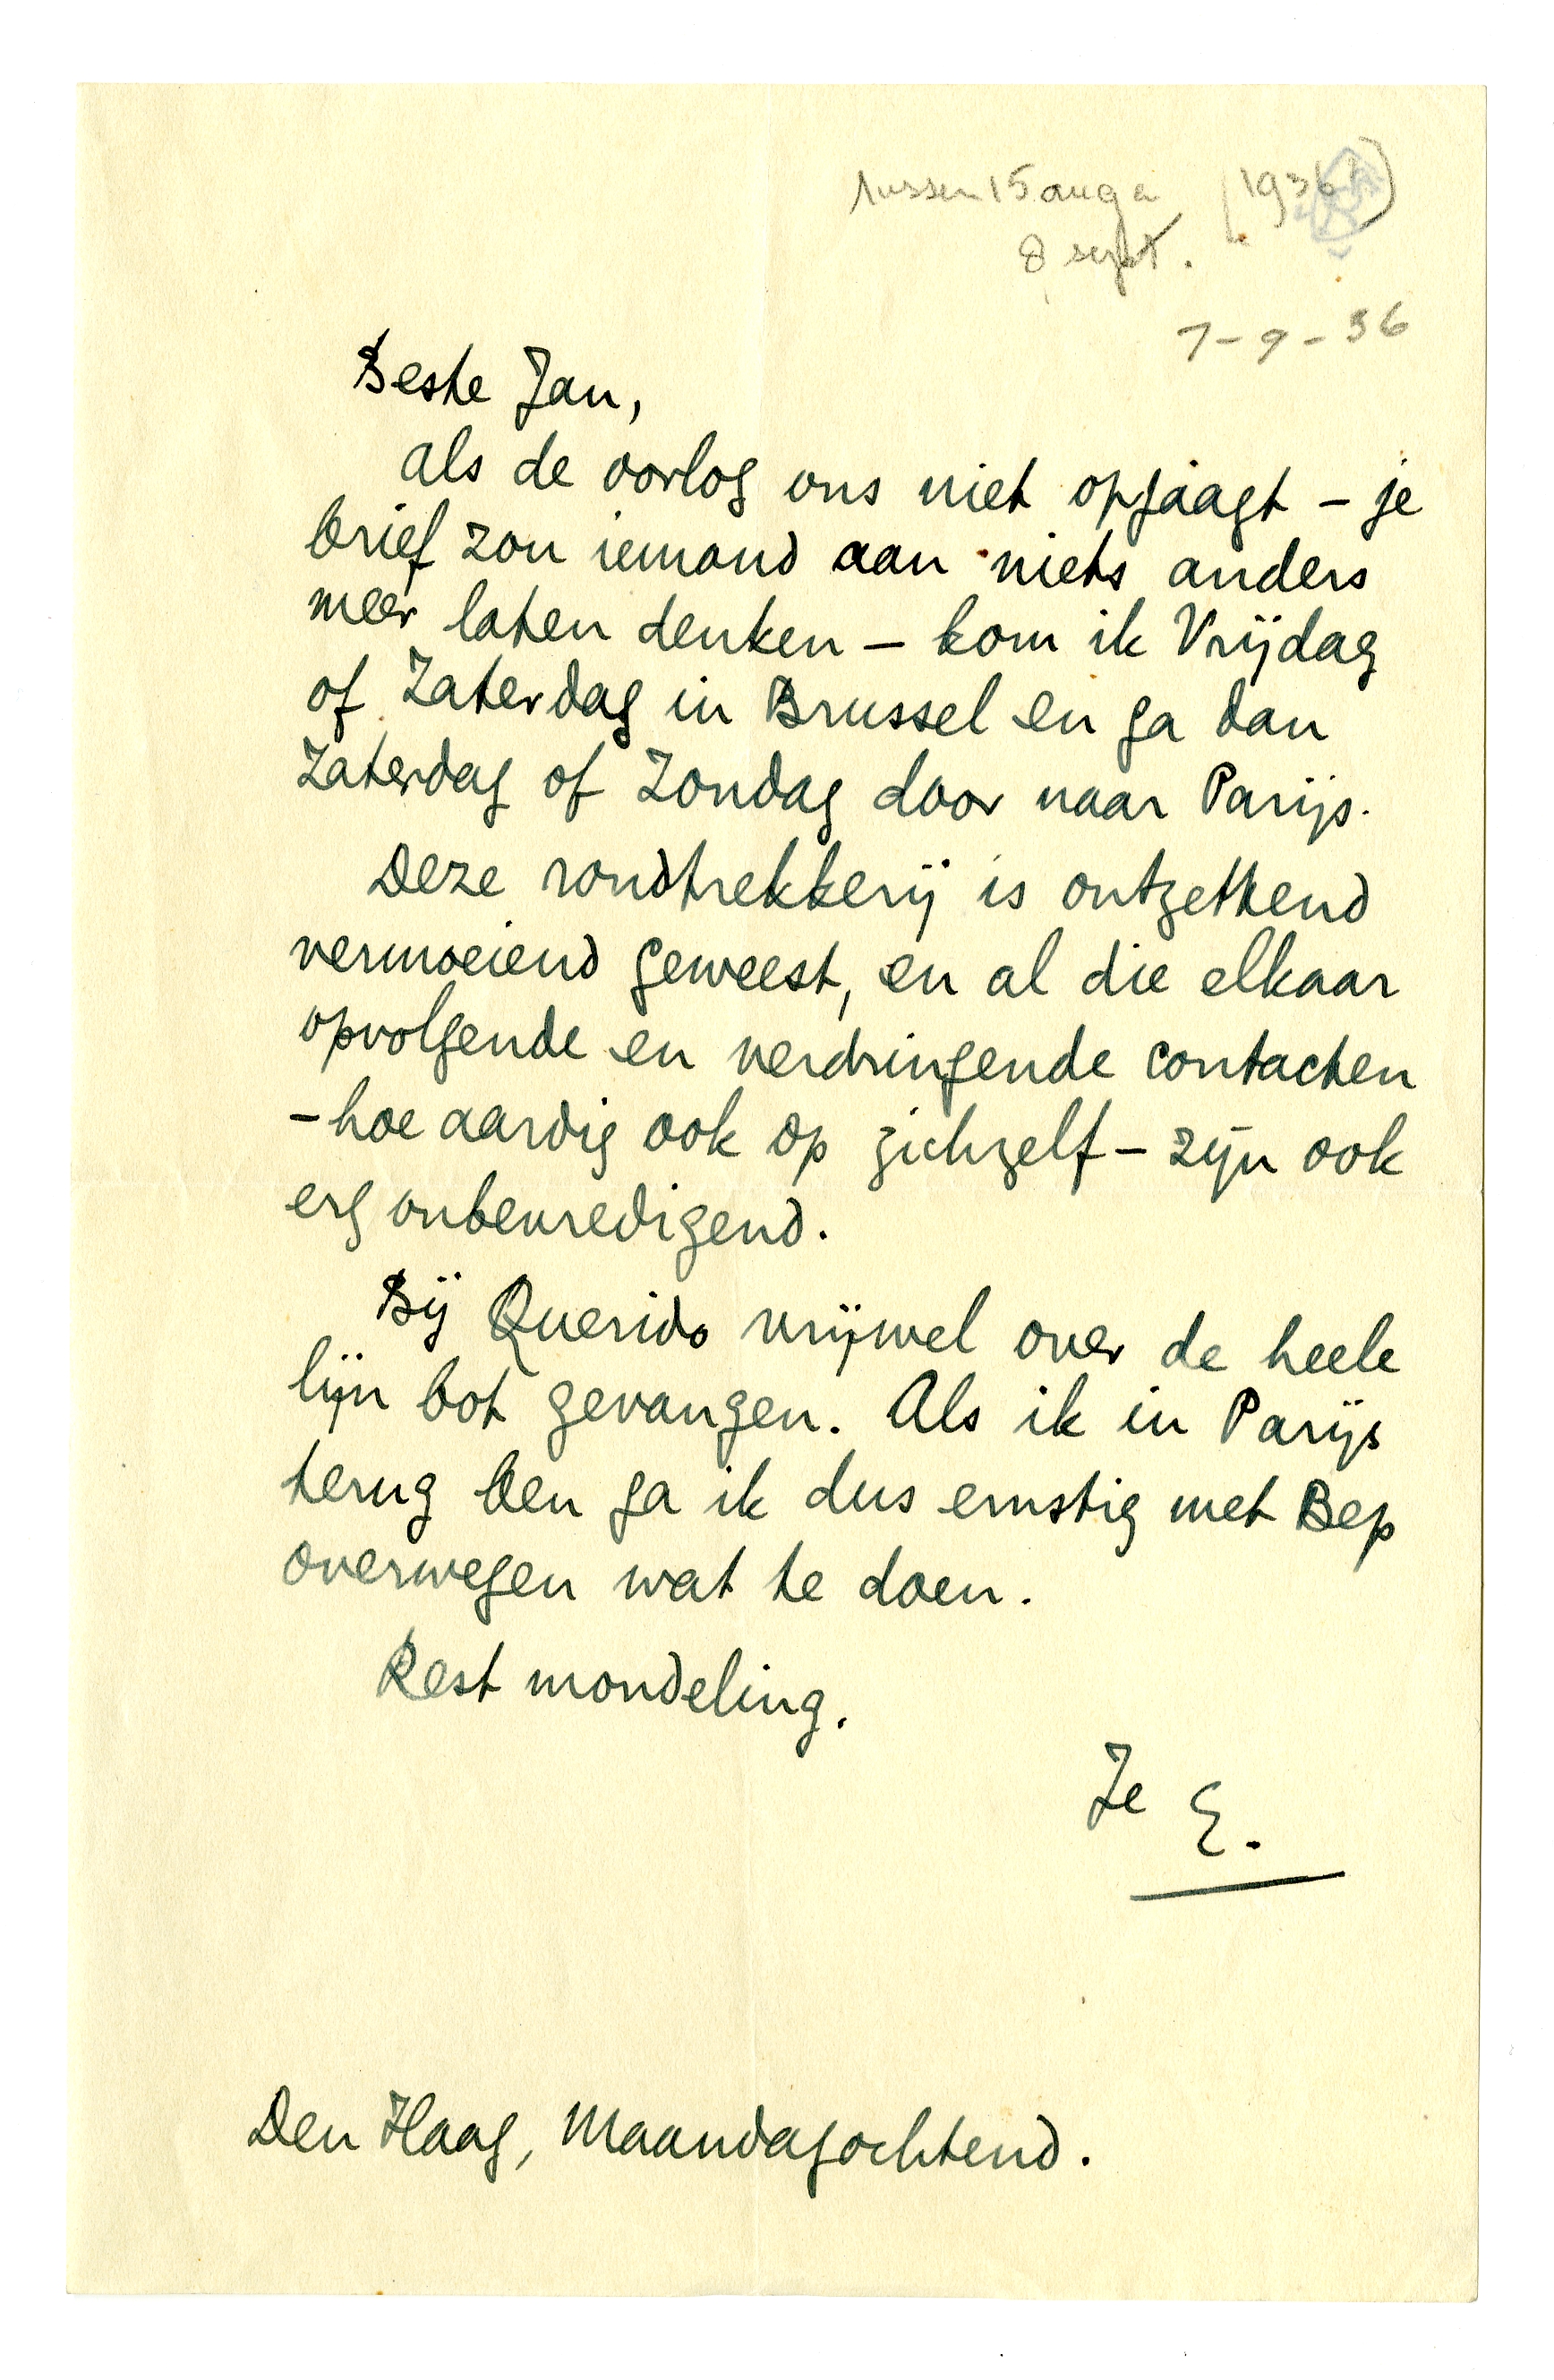 tussen 15 aug a [1936?]
8 sept.
7-9-36
Beste Jan,
als de oorlog ons niet opjaagt – je
brief zou iemand aan niets anders
meer laten denken – kom ik Vrijdag
of Zaterdag in Brussel en ga dan
Zaterdag of Zondag door naar Parijs.
Deze rondtrekkerij is ontzettend
vermoeiend geweest, en al die elkaar
opvolgende en verdringende contacten
– hoe aardig ook op zichzelf – zijn ook
erg onbevredigend.
Bij Querido vrijwel over de heele
lijn bot gevangen. Als ik in Parijs
terug ben ga ik dus ernstig met Bep
overwegen wat te doen.
Rest mondeling.
Je E.
Den Haag, Maandagochtend.